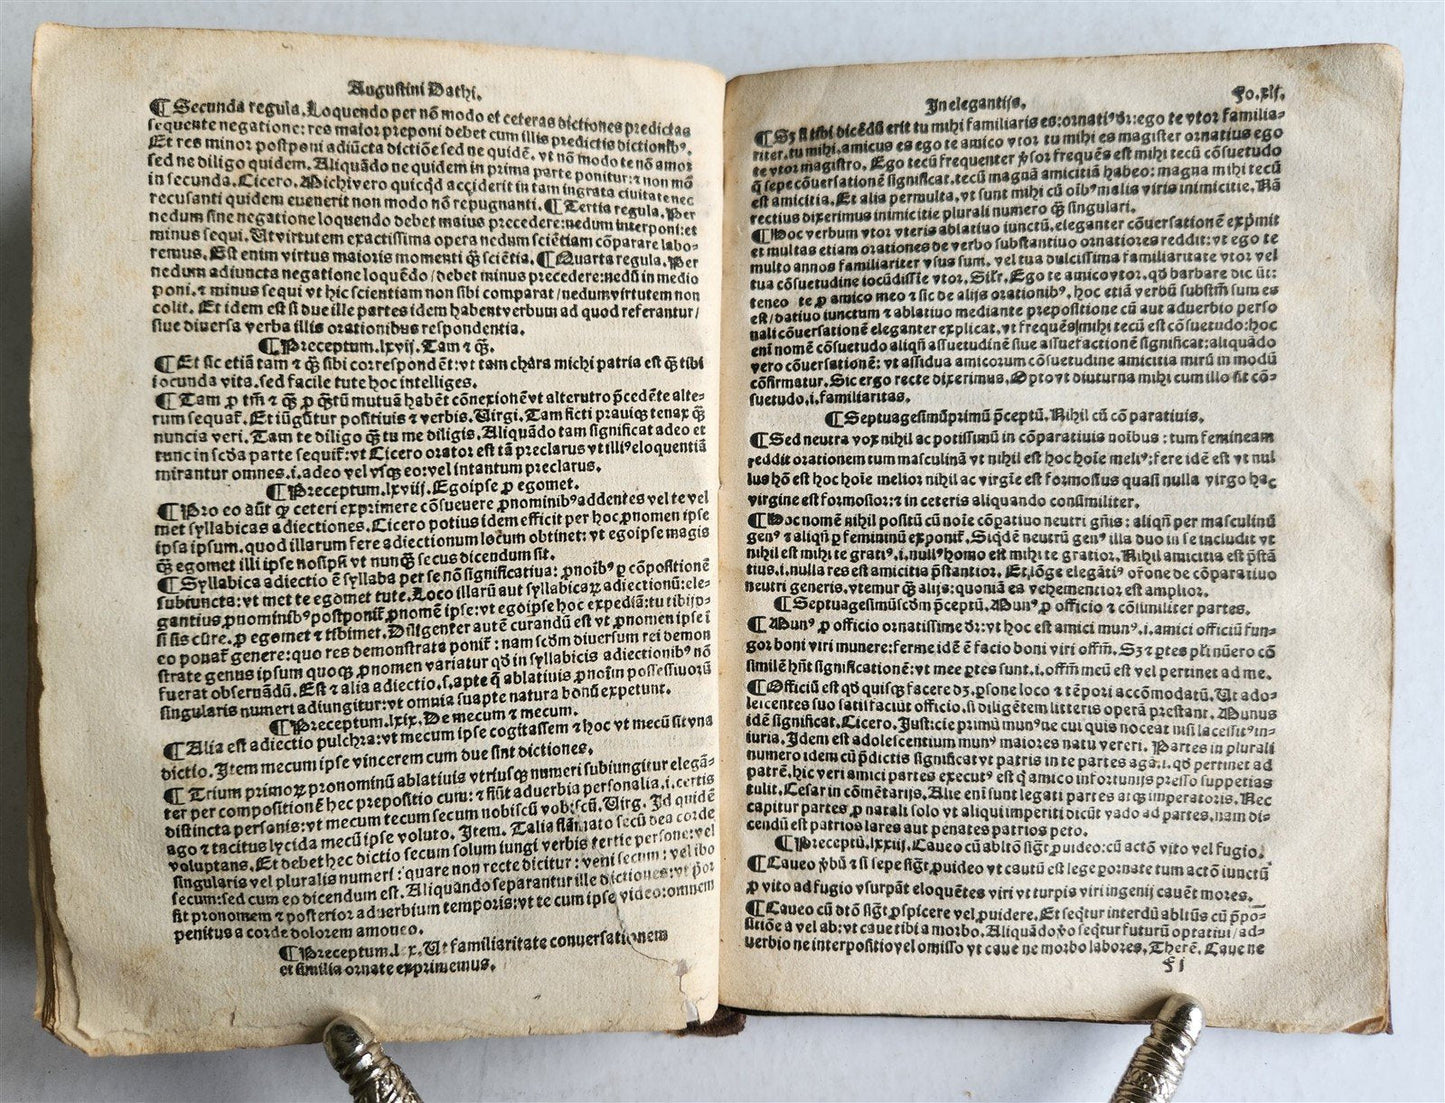 Augustini Dathi.
¶ Secunda regula. Loquendo per nõ modo et ceteras dictiones predictas
sequente negatione: res maior preponi debet cum illis predictis dictionib⁹.
Et res minor postponi adiũcta dictiõe sed ne quidẽ. vt nõ modo te nõ amor
sed ne diligo quidem. Aliquãdo ne quidem in prima parte ponitur: ⁊ non mõ
in secunda. Cicero. Michi vero quicq̃d acciderit in tam ingrata ciuitate nec
recusanti quidem euenerit non modo nõ repugnanti. ¶ Tertia regula. Per
nedum sine negatione loquendo debet maius precedere: nedum interponi: et
minus sequi. Ut virtutem exactissima opera nedum sciẽtiam cõparare labo-
remus. Est enim virtus maioris momenti q̃ sciẽtia. ¶ Quarta regula. Per
nedum adiuncta negatione loquẽdo / debet minus precedere: nedũ in medio
poni. ⁊ minus sequi vt hic scientiam non sibi comparat / nedum virtutem non
colit. Et idem est si due ille partes idem habent verbum ad quod referantur /
siue diuersa verba illis orationibus respondentia.
¶ Preceptum. lxvij. Tam ⁊ q̃.
¶ Et sic etiã tam ⁊ q̃ sibi correspondẽt: vt tam chara michi patria est q̃ tibi
iocunda vita. sed facile tute hoc intelliges.
¶ Tam ꝓ tm̃ ⁊ q̃ ꝓ q̃tũ mutuã habẽt cõnexionẽ vt alterutro p̃cedẽte alte-
rum sequat̃. Et iũgũtur positiuis ⁊ verbis. Uirgi. Tam ficti prauiqꝫ tenax q̃
nuncia veri. Tam te diligo q̃ tu me diligis. Aliquãdo tam significat adeo et
tunc in scđa parte sequit̃: vt Cicero orator est tã preclarus vt illi⁹ eloquentiã
mirantur omnes. i. adeo vel vsqꝫ eo: vel intantum preclarus.
¶ Preceptum. lxviij. Egoipse ꝓ egomet.
¶ Pro eo aũt qꝫ ceteri exprimere cõsueuere ꝓnominib⁹ addentes vel te vel
met syllabicas adiectiones. Cicero potius idem efficit per hoc ꝓnomen ipse
ipsa ipsum. quod illarum fere adiectionum locũm obtinet: vt egoipse magis
q̃ egomet illi ipse nosipsi vt nunq̃ secus dicendum sit.
¶ Syllabica adiectio ẽ syllaba per se nõ significatiua: ꝓnoĩb⁹ ꝑ cõpositionẽ
subiuncta: vt met te egomet tute. Loco illarũ aut syllabicaꝝ adiectionũ: ele-
gantius ꝓnominib⁹ postponit̃ ꝓnomẽ ipse: vt egoipse hoc expediã: tu tibi ip-
si sis cũre. ꝓ egomet ⁊ tibimet. Diligenter autẽ curandũ est vt ꝓnomen ipse ĩ
eo ponat̃ genere: quo res demonstrata ponit̃: nam scđm diuersum rei demon
strate genus ipsum quoqꝫ ꝓnomen variatur qđ in syllabicis adiectionib⁹ nõ
fuerat obseruãdũ. Est ⁊ alia adiectio. s. apte q̃ ablatiuis ꝓnoĩm possessiuorũ
singularis numeri adiungitur: vt omnia suapte natura bonũ expetunt.
¶ Preceptum. lxix. De mecum ⁊ mecum.
¶ Alia est adiectio pulchra: vt mecum ipse cogitassem ⁊ hoc vt mecũ sit vna
dictio. Item mecum ipse vincerem cum due sint dictiones.
¶ Trium primoꝝ pronominũ ablatiuis vtriusqꝫ numeri subiungitur elegã-
ter per compositionẽ hec prepositio cum: ⁊ fiũt aduerbia personalia. i. certis
distincta personis: vt mecum tecum secum nobiscũ vobiscũ. Uirg. Id quidẽ
ago ⁊ tacitus lycida mecũ ipse voluto. Item. Talia flãmato secũ dea corde
voluptans. Et debet hec dictio secum solum iungi verbis tertie persone: vel
singularis vel pluralis numeri: quare non recte dicitur: veni secum: vel ibo
secum: sed cum eo dicendum est. Aliquando separantur ille dictiones: vt p̃or
sit pronomem ⁊ posterior aduerbium temporis: vt te cum ipse video: omnem
penitus a corde dolorem amoueo.
¶ Preceptum. lxx. Ut familiaritate conuersationem
et similia ornate exprimemus.
In elegantijs. Fo. xlj.
¶ Sꝫ si tibi dicẽdũ erit tu mihi familiaris es: ornati⁹ dr̃: ego te vtor familia-
riter. tu mihi. amicus es ego te amico vtor tu mihi es magister ornatius ego
te vtor magistro. Ego tecũ frequenter ꝟsor frequẽs est mihi tecũ cõsuetudo
q̃ sepe cõuersationẽ significat. tecũ magnã amicitiã habeo: magna mihi tecũ
est amicitia. Et alia permulta. vt sunt mihi cũ oĩb⁹ malis viris inimicitie. Nã
rectius dixerimus inimicitie plurali numero q̃ singulari.
¶ Hoc verbum vtor vteris ablatiuo iunctũ. eleganter cõuersationẽ exp̃mit
et multas etiam orationes de verbo substantiuo ornatiores reddit: vt ego te
multo annos familiariter vsus sum. vel tua dulcissima familiaritate vtor vel
tua cõsuetudine iocũdissie vtor. Silr̃. Ego te amico vtor. qđ barbare dic ũt:
teneo te ꝓ amico meo ⁊ sic de alijs orationib⁹. hoc etiã verbũ substm̃ sum es
est / datiuo iunctum ⁊ ablatiuo mediante prepositione cũ aut aduerbio perso
nali cõuersationẽ eleganter explicat. vt frequẽs mihi tecũ est cõsuetudo: hoc
enĩ nomẽ cõsuetudo aliqñ assuetudinẽ siue assuefactionẽ significat: aliquãdo
vero cõuersationẽ: vt assidua amicorum cõsuetudine amicitia mirũ in modũ
cõfirmatur. Sic ergo recte dixerimus. Opto vt diuturna mihi cum illo sit cõ-
suetudo. i. familiaritas.
¶ Septuagesimũprimũ p̃ceptũ. Nihil cũ cõparatiuis.
¶ Sed neutra vox nihil ac potissimũ in cõparatiuis noĩbus: tum femineam
reddit orationem tum masculinã vt nihil est hoc hoĩe meli⁹: fere idẽ est vt nul
lus hõ est hoc hoĩe melior nihil ac virgĩe est formosius quasi nulla virgo hac
virgine est formosior: ⁊ in ceteris aliquando consimiliter.
¶ Hoc nomẽ nihil positũ cũ noĩe cõparatiuo neutri gñis: aliqñ per masculinũ
gen⁹ ⁊ aliqñ ꝑ femininũ exponit̃. Siqdẽ neutrũ gen⁹ illa duo in se includit vt
nihil est mihi te grati⁹. i. null⁹ homo est mihi te gratior. Nihil amicitia est p̃stã
tius. i. nulla res est amicitia p̃stantior. Et lõge elegãti⁹ or̃one de cõparatiuo
neutri generis. vtemur q̃ alijs: quoniã ea vehementior est amplior.
¶ Septuagesimũscđm p̃ceptũ. Mun⁹ ꝓ officio ⁊ cõsimiliter partes.
¶ Mun⁹ ꝓ officio ornatissime dr̃: vt hoc est amici mun⁹. i. amici officiũ fun-
gor boni viri munere: ferme idẽ ẽ facio boni viri offm̃. Sꝫ ⁊ ꝑtes pl̃i nũero cõ
similẽ hñt significationẽ: vt mee ꝑtes sunt. i. offm̃ meũ est vel pertinet ad me.
¶ Officiũ est qđ quisqꝫ facere dꝫ. ꝑsone loco ⁊ tẽpori accõmodatũ. Ut ado-
lescentes suo satisfaciũt officio. si diligẽtem litteris operã prestant. Munus
idẽ significat. Cicero. Justicie primũ mun⁹ ne cui quis noceat nisi lacessit⁹ in-
iuria. Idem est adolescentium mun⁹ maiores natu vereri. Partes in plurali
numero idem cũ p̃dictis significat vt patris in te partes agã. i. qđ pertinet ad
patrẽ. hic veri amici partes execut⁹ est q̃ amico infortunijs presso suppetias
tulit. Cesar in cõmẽtarijs. Alie enĩ sunt legati partes atqꝫ imperatoris. Nec
capitur partes ꝓ natali solo vt aliqui imperiti dicũt vado ad partes. nam di-
cendũ est patrios lares aut penates patrios peto.
¶ Preceptũ. lxxiij. Caueo cũ abltõ sig̃t ꝓuideo: cũ actõ vito vel fugio.
¶ Caueo ꝟbũ ⁊ si sepe sig̃t ꝓuideo vt cautũ est lege ꝓornate tum actõ iunctũ
ꝓ vito ad fugio vsurpãt eloquẽtes viri vt turpis viri ingenij cauẽt mores.
¶ Caueo cũ dtõ sig̃t ꝓspicere vel ꝓuidere. Et seq̃tur interdũ abltiũs cũ p̃po-
sitiõe a vel ab: vt caue tibi a morbo. Aliquãdo ꝟo seq̃tur futurũ optatiui / ad-
uerbio ne interpositio vel omisso vt caue ne morbo labores. Therẽ. Caue ne
f i